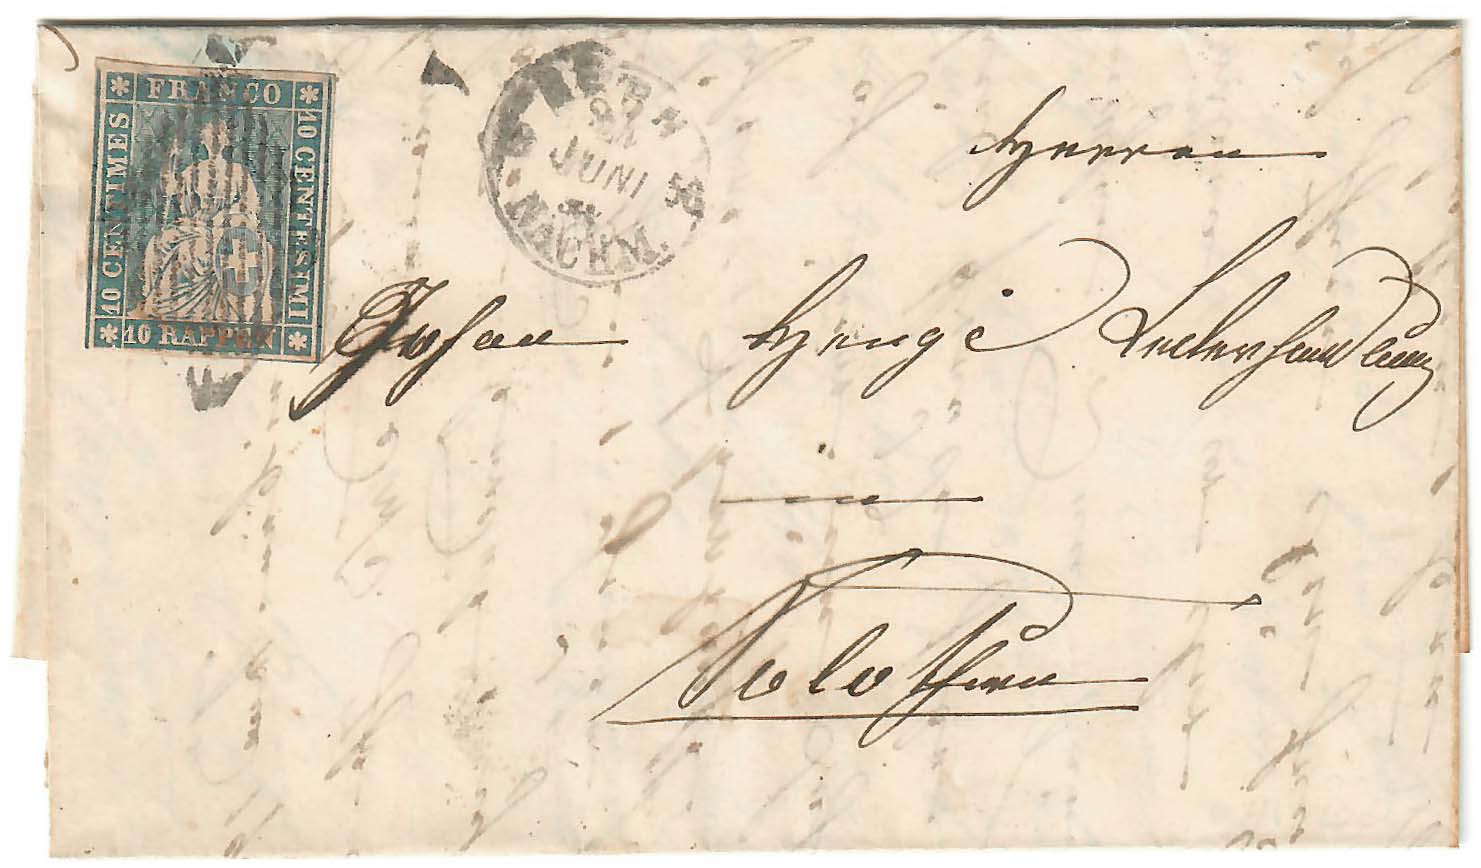 FRANCO
10 CENTIMES
10 CENTESIMI
10 RAPPEN
BERN
JUNI
56
NACHM.
Herren
Johan Lederhandlung
in
Solothurn